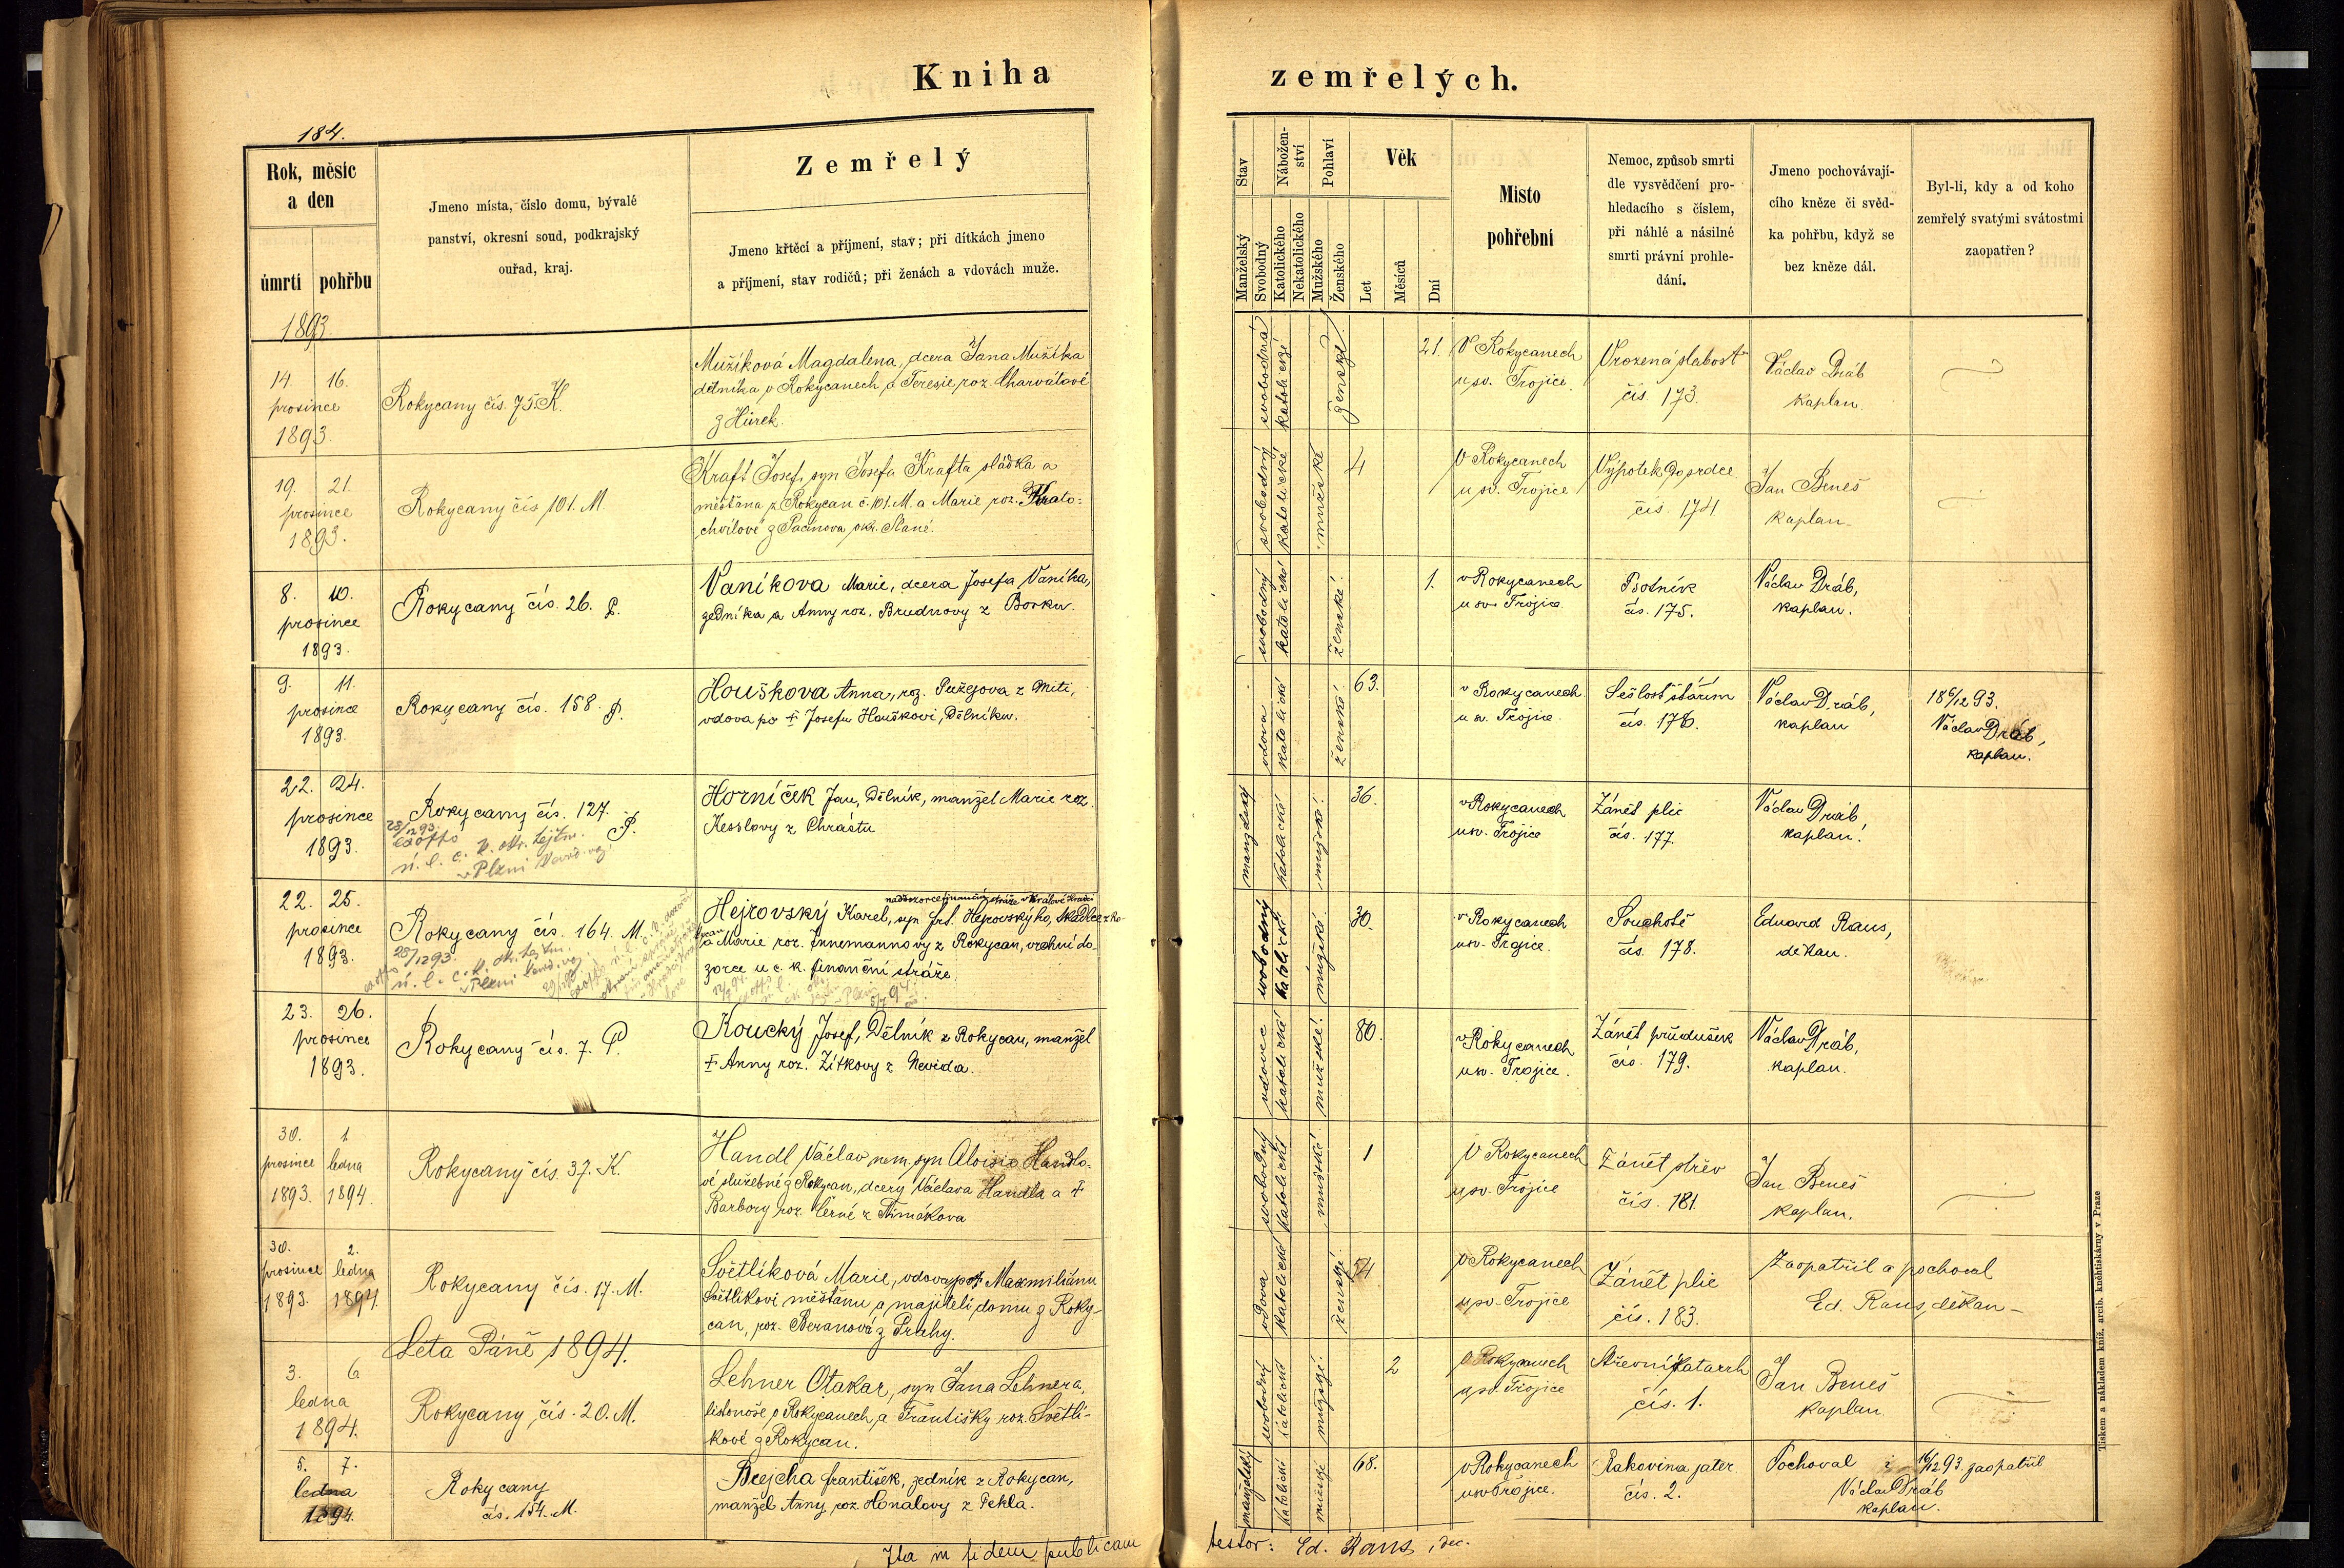 Kniha zemřelých.
184.
Rok, měsíc
a den
úmrtí pohřbu
Jmeno místa, číslo domu, bývalé
panství, okresní soud, podkrajský
ouřad, kraj.
Zemřelý
Jmeno křtěcí a příjmení, stav; při dítkách jmeno
a příjmení, stav rodičů; při ženách a vdovách muže.
Stav
Manželský
Svobodný
Nábožen-
ství
Katolického
Nekatolického
Pohlaví
Mužského
Ženského
Věk
Let
Měsíců
Dní
Místo
pohřební
Nemoc, způsob smrti
dle vysvědčení pro-
hledacího s číslem,
při náhlé a násilné
smrti právní prohle-
dání.
Jmeno pochovávají-
cího kněze či svěd-
ka pohřbu, když se
bez kněze dál.
Byl-li, kdy a od koho
zemřelý svatými svátostmi
zaopatřen?
1893
14 16.
prosince
1893.
Rokycany čís. 75. K.
Mužíková Magdalena, dcera Jana Mužíka
dělníka v Rokycanech a Teresie roz. Charvátové
z Hůrek.
svobodná
katolické
ženské
21.
V Rokycanech
u sv. Trojice.
Vrozená slabost
čís. 173.
Václav Dráb
kaplan.
19. 21.
prosince
1893.
Rokycany čís 101. M.
Kraft Josef, syn Josefa Krafta sládka a
měšťana z Rokycan č. 101. M. a Marie roz. Krato-
chvílové z Pacinova okr. Slané.
svobodný
katolické
mužské
4
V Rokycanech
u sv. Trojice
Výpotek do srdce
čís. 174
Jan Beneš
kaplan
8. 10.
prosince
1893.
Rokycany čís. 26. P.
Vaníkova Marie, dcera Josefa Vaníka,
zedníka a Anny roz. Brudnovy z Borku.
svobodný
katolické
ženské.
1.
v Rokycanech
u sv. Trojice
Psotník
čís. 175.
Václav Dráb,
kaplan.
9. 11.
prosince
1893.
Rokycany čís. 158. P.
Houškova Anna, roz. z Mití,
vdova po † Josefu Houškovi, Dělníku.
vdova
katolické
ženské
63.
v Rokycanech
u sv. Trojice
Sešlost stářím
čís. 176.
Václav Dráb,
kaplan
18 6/12 93.
Václav Dráb,
kaplan.
22. 24.
prosince
1893.
Rokycany čís. 127.
P.
28/12 93.
v Plzni
Horníček Jan, Dělník, manžel Marie roz.
Kesslovy z Chrástu
manželský
katolické
mužské.
36.
v Rokycanech
u sv. Trojice
Zánět plic
čís. 177.
Václav Dráb,
kaplan.
22. 25.
prosince
1893.
Rokycany čís. 164. M.
28/12 93.
v Plzni
naddozorce finanční stráže v Králové Hradci
Hejrovský Karel, syn Frt. Hejrovského,
a Marie roz. Innemannovy z Rokycan, vrchní do-
zorce u c. k. finanční stráže.
svobodný
katolické
mužské.
30.
v Rokycanech
u sv. Trojice.
Souchotě
čís. 178.
Eduard Raus,
děkan.
23. 26.
prosince
1893.
Rokycany čís. 7. P.
Koucký Josef, Dělník z Rokycan, manžel
† Anny roz. Žitkovy z Nevida.
vdovec
katolické
mužské.
80.
v Rokycanech
u sv. Trojice.
Zánět průdušek
čís. 179.
Václav Dráb,
kaplan.
30. 1
prosince ledna
1893. 1894.
Rokycany čís. 37. K.
Handl Václav nem. syn Aloisie Handlo-
vé služebné z Rokycan, dcery Václava Handla a †
Barbory roz. Černé z Strnákova
svobodný
katolické
mužské
1
V Rokycanech
u sv. Trojice
Zánět střev
čís. 181.
Jan Beneš
kaplan.
30. 2.
prosince ledna
1893. 1894.
Rokycany čís. 17. M.
Světlíková Marie, vdova po † Maxmiliánu
Světlíkovi měšťanu a majiteli domu z Roky-
can, roz. Beranová z Prahy.
vdova
katolické
ženské.
54
V Rokycanech
u sv. Trojice
Zánět plic
čís. 183.
Zaopatřil a pochoval
Ed. Raus, děkan
Léta Páně 1894.
3. 6
ledna
1894.
Rokycany čís. 20. M.
Lehner Otakar, syn Jana Lehnera,
listonoše v Rokycanech a Františky roz. Světlí-
kové z Rokycan.
svobodný
katolické
mužské.
2
V Rokycanech
u sv. Trojice
Střevní katarrh
čís. 1.
Jan Beneš
kaplan
5. 7.
ledna
1894.
Rokycany
čís. 154. M.
Brejcha František, zedník z Rokycan,
manžel Anny roz. Honalovy z Pekla.
manželský
katolické
mužské
68.
v Rokycanech
u sv. Trojice.
Rakovina jater
čís. 2.
Pochoval i 16/12 93. zaopatřil
Václav Dráb
kaplan.
Ita in fidem publicam testor: Ed. Raus, dec.
Tiskem a nákladem kníž. arcib. knihtiskárny v Praze